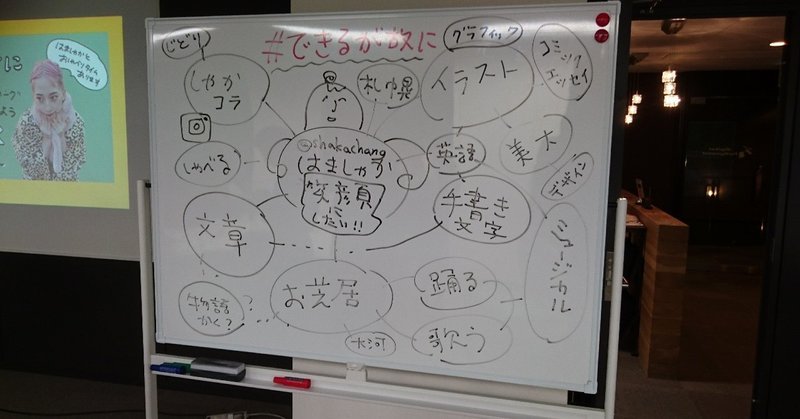 #できるが故に
じどり
しゃか
コラ
札幌
グラフィック
イラスト
コミック
エッセイ
@shakachang
はましゃか
笑顔に
したい!!
英語
美大
デザイン
しゃべる
文章
手書き
文字
ミュージカル
お芝居
踊る
歌う
大河
物語
かく?
?
はましゃかと
おしゃべりタイム
あります
に
よう